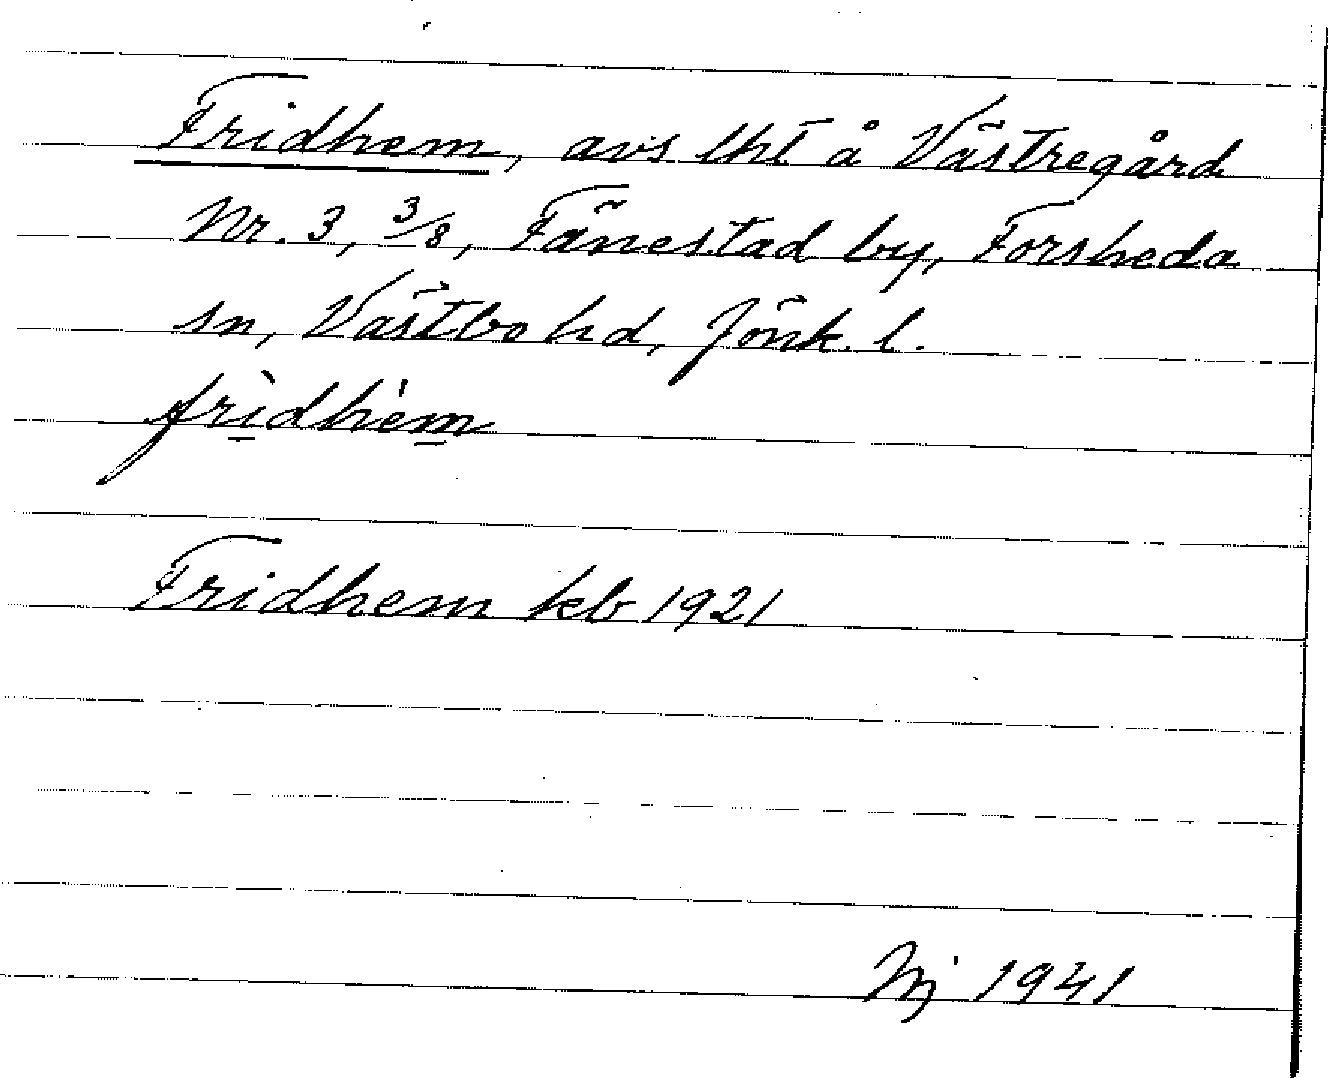 Fridhem, avs lht å Västregård
Nr. 3, 3/8, Fänestad by, Forsheda
sn, Västbo hd, Jönk. l.
fri̠dhem̠
Fridhem kb 1921
1941